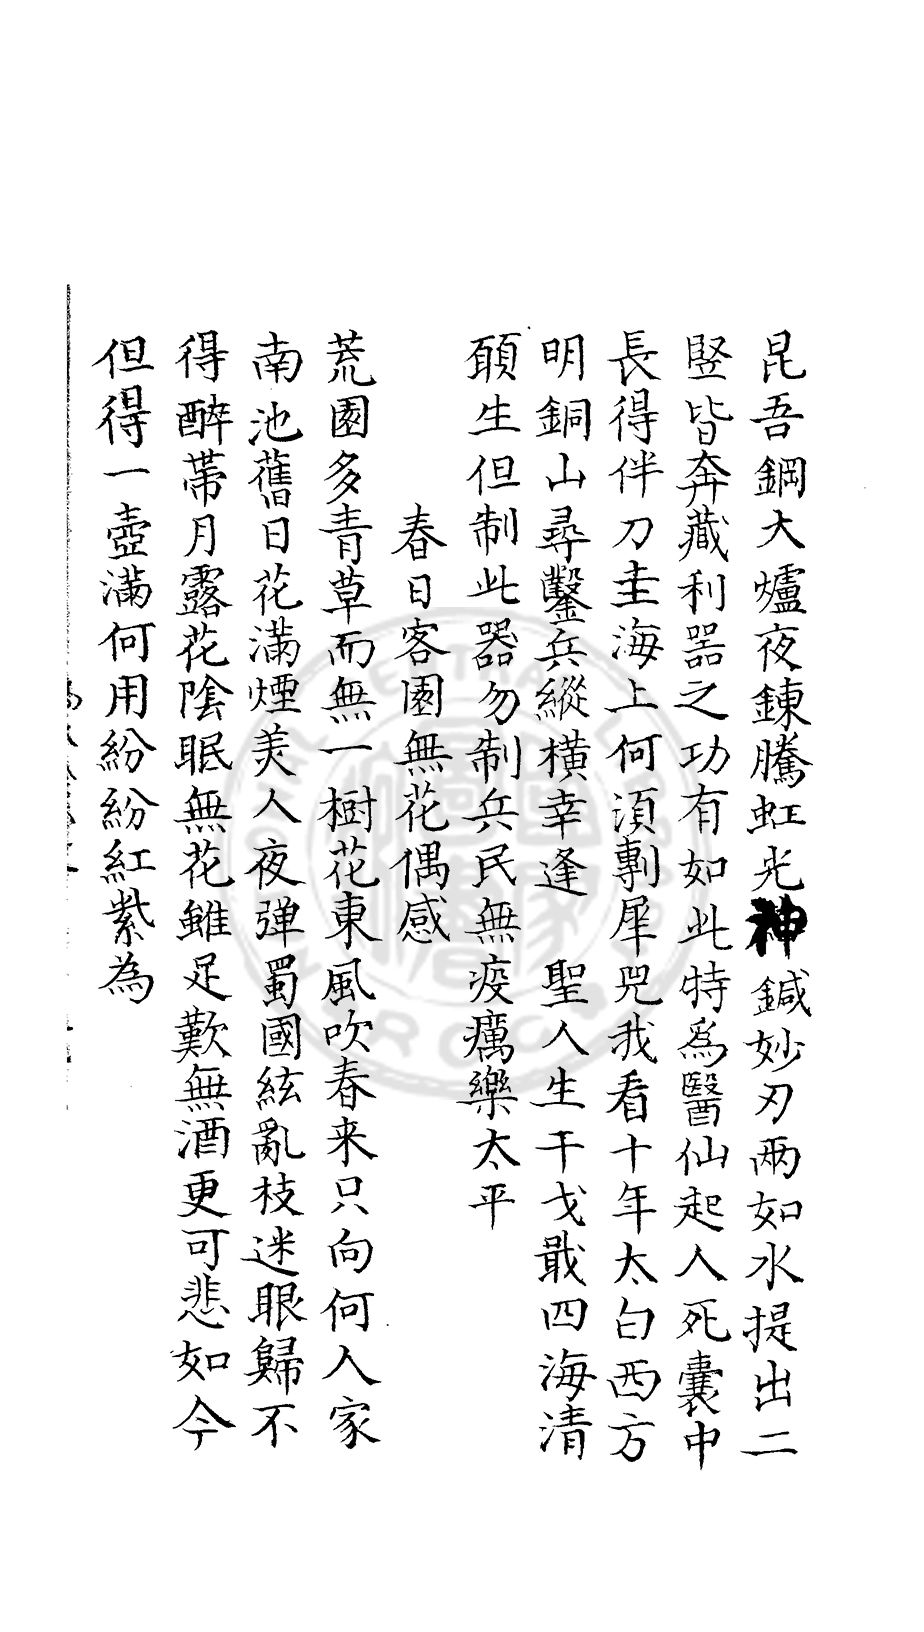 昆吾鋼大爐夜鍊騰虹光神鍼妙刃兩如水提出二
竪皆奔藏利噐之功有如此特為醫仙起人死囊中
長得伴刀圭海上何湏剸犀兕我看十年太白西方
明銅山尋鑿兵縱橫幸逢 聖人生干戈戢四海清
願生但制此器勿制兵民無疫癘樂太平
春日客園無花偶感
荒園多青草而無一樹花東風吹春来只向何人家
南池舊日花滿煙美人夜弹蜀國絃亂枝迷眼歸不
得醉帶月露花陰眠無花雖足歎無酒更可悲如今
但得一壺滿何用紛紛紅紫為